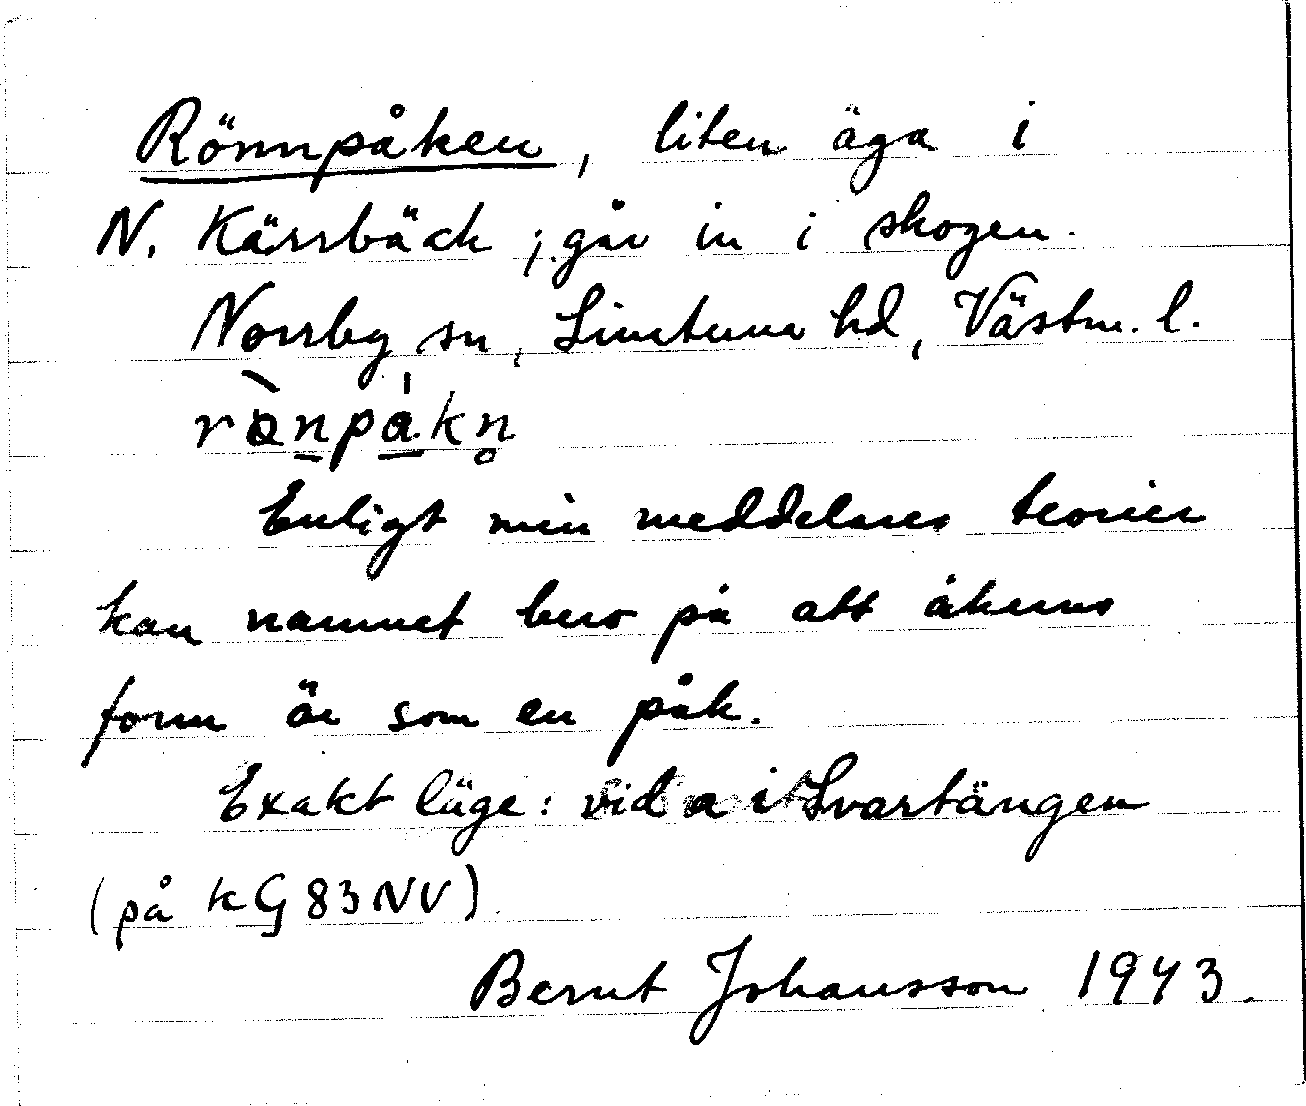 Rönnpåken, liten äga i
N. Kärrbäck; går in i skogen.
Norrby sn, Simtuna hd, Västm. l.
Enligt min meddelares teorier
kan namnet bero på att åkerns
form är som en påk.
Exakt läge: vid a i Svartängen
(på kG 83 NV)
Bernt Johansson 1943.